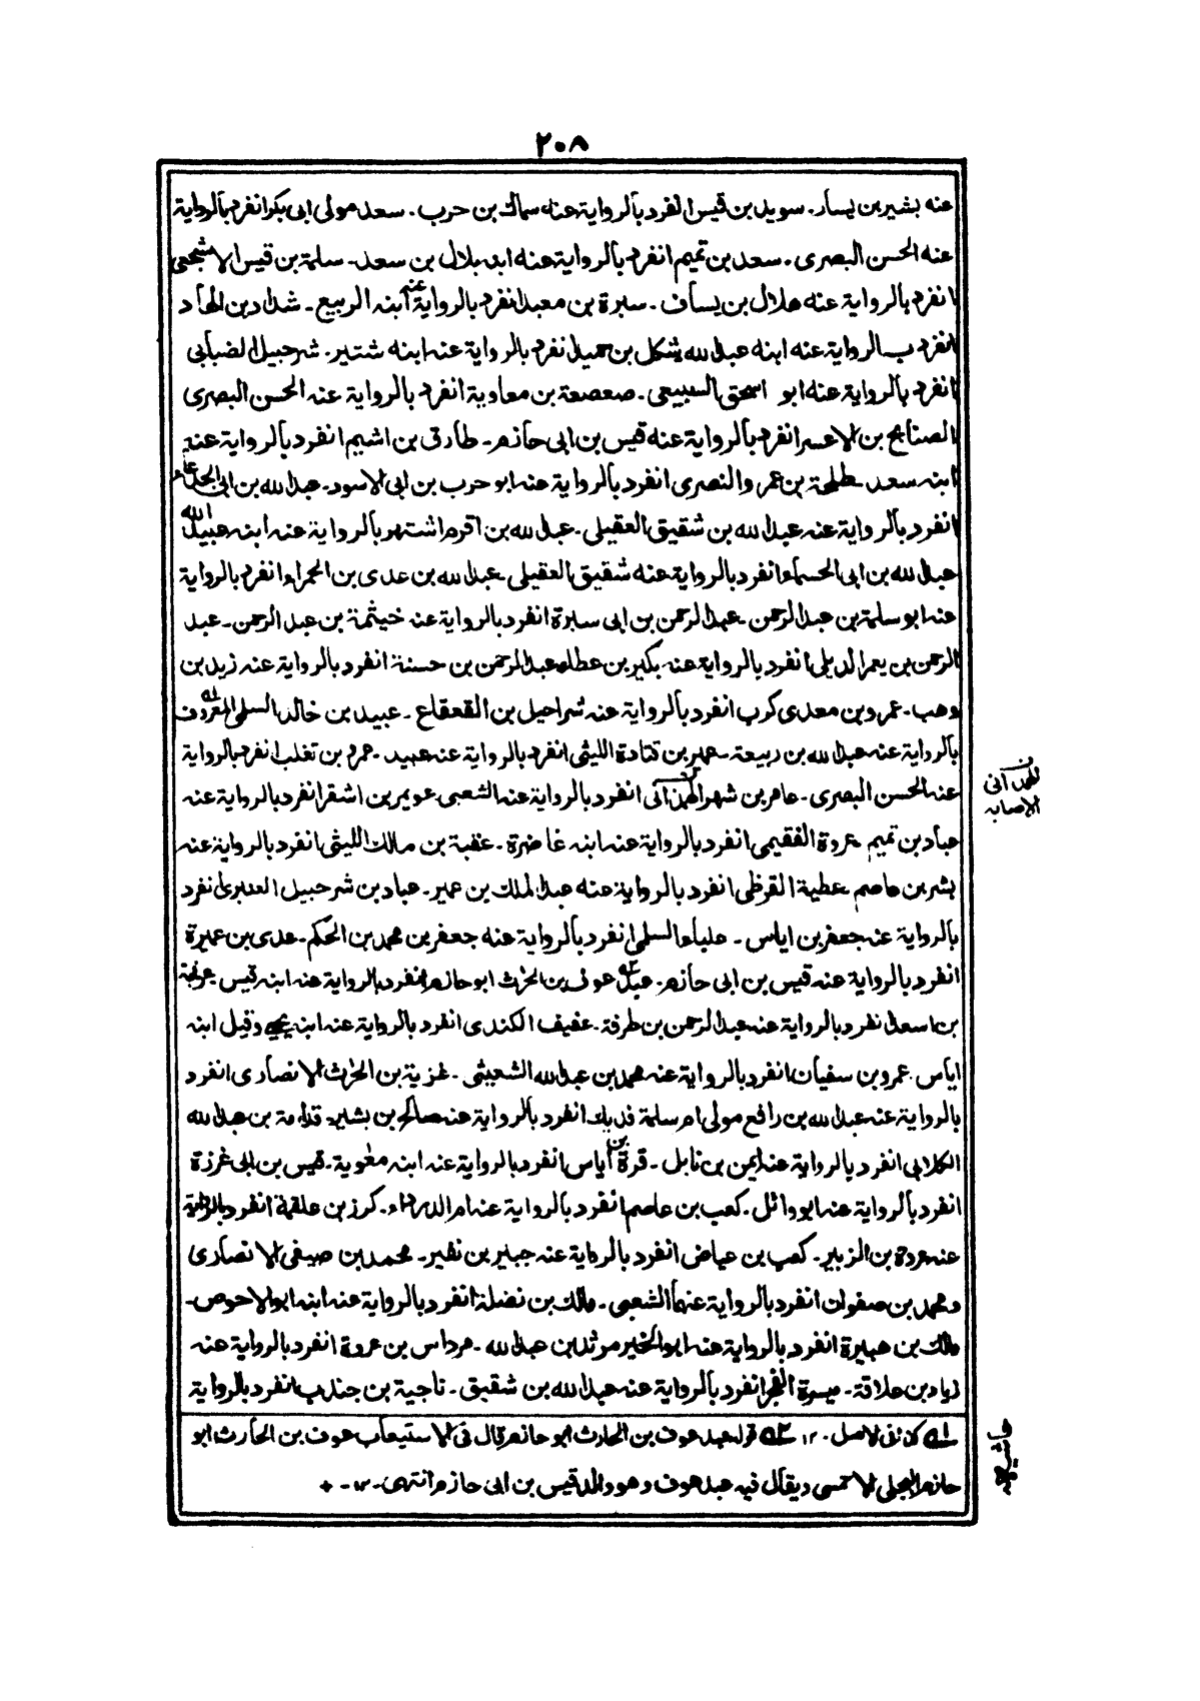 ٢٠٨
عنه بشير بن يسار. سويد بن قيس انفرد بالرواية عنه سماك بن حرب. سعد مولى ابى بكر انفرد بالرواية
عنه الحسن البصرى. سعد بن تميم انفرد بالرواية عنه ابنه بلال بن سعد. سلمة بن قيس الاشجعى
انفرد بالرواية عنه هلال بن يساف. سبرة بن معبد انفرد بالرواية عنه ابنه الربيع. شداد بن الهاد
انفرد بالرواية عنه ابنه عبد الله شكل بن حميد انفرد بالرواية عنه ابنه شتير. شرحبيل الضبابى
انفرد بالرواية عنه ابو اسحق السبيعى. صعصعة بن معاوية انفرد بالرواية عنه الحسن البصرى
الصنابح بن الاعسر انفرد بالرواية عنه قيس بن ابى حازم. طارق بن اشيم انفرد بالرواية عنه
ابنه سعد طلحة بن عمر والنصرى انفرد بالرواية عنه ابو حرب بن ابى الاسود. عبد الله بن ابى الجدعاء
انفرد بالرواية عنه عبد الله بن شقيق العقيلى. عبد الله بن اقرم اشتهر بالرواية عنه ابنه عبيد الله
عبد الله بن ابى الحسماء انفرد بالرواية عنه شقيق العقيلى عبد الله بن عدى بن الحمراء انفرد بالرواية
عنه ابو سلمة بن عبد الرحمن. عبد الرحمن بن ابى سبرة انفرد بالرواية عنه خيثمة بن عبد الرحمن. عبد
الرحمن بن يعمر الديلى انفرد بالرواية عنه بكير بن عطاء عبد الرحمن بن حسنة انفرد بالرواية عنه زيد بن
وهب. عمرو بن معدى كرب انفرد بالرواية عنه شراحيل بن القعقاع. عبيد بن خالد السلمى المعروف
بالرواية عنه عبد الله بن ربيعة. عمير بن قتادة الليثى انفرد بالرواية عنه عبيد. عمرو بن تغلب انفرد بالرواية
عنه الحسن البصرى. عامر بن شهر الهمدانى انفرد بالرواية عنه الشعبى عويمر بن اشقر انفرد بالرواية عنه
عباد بن تميم عروة الفقيمى انفرد بالرواية عنه ابنه غاضرة. عقبة بن مالك الليثى انفرد بالرواية عنه
بشر بن عاصم عطية القرظى انفرد بالرواية عنه عبد الملك بن عمير. عباد بن شرحبيل العنبرى انفرد
بالرواية عنه جعفر بن اياس. علباء السلمى انفرد بالرواية عنه جعفر بن محمد بن الحكم. عدى بن عميرة
انفرد بالرواية عنه قيس بن ابى حازم. عبد عوف بن الحرث ابو حازم انفرد بالرواية عنه ابنه قيس عرفجة
بن اسعد انفرد بالرواية عنه عبد الرحمن بن طرفة. عفيف الكندى انفرد بالرواية عنه ابنه يحيى وقيل ابنه
اياس. عمرو بن سفيان انفرد بالرواية عنه محمد بن عبد الله الشعيثى. غزية بن الحرث الانصارى انفرد
بالرواية عنه عبد الله بن رافع مولى ام سلمة فديك انفرد بالرواية عنه صالح بن بشير. قدامة بن عبد الله
الكلابى انفرد بالرواية عنه ايمن بن نابل. قرة بن اياس انفرد بالرواية عنه ابنه معوية. قيس بن ابى غرزة
انفرد بالرواية عنه ابو وائل. كعب بن عاصم انفرد بالرواية عنه ام الدرداء. كرز بن علقمة انفرد بالرواية
عنه عروة بن الزبير. كعب بن عياض انفرد بالرواية عنه جبير بن نفير. محمد بن صيفى الانصارى
ومحمد بن صفوان انفرد بالرواية عنهما الشعبى. مالك بن نضلة انفرد بالرواية عنه ابنه ابو الاحوص.
مالك بن هبيرة انفرد بالرواية عنه ابو الخير مرثد بن عبد الله. مرداس بن عروة انفرد بالرواية عنه
زياد بن علاقة. ميسرة الفجر انفرد بالرواية عنه عبد الله بن شقيق. ناجية بن جندب انفرد بالرواية
له كذا فى الاصل. ١٢ ٢ه قوله عبد عوف بن الحارث ابو حازم قال فى الاستيعاب عوف بن الحارث ابو
حازم البجلى الاحمسى ويقال فيه عبد عوف وهو والد قيس بن ابى حازم انتهى. ١٢.
الهمدانى
الاصابه